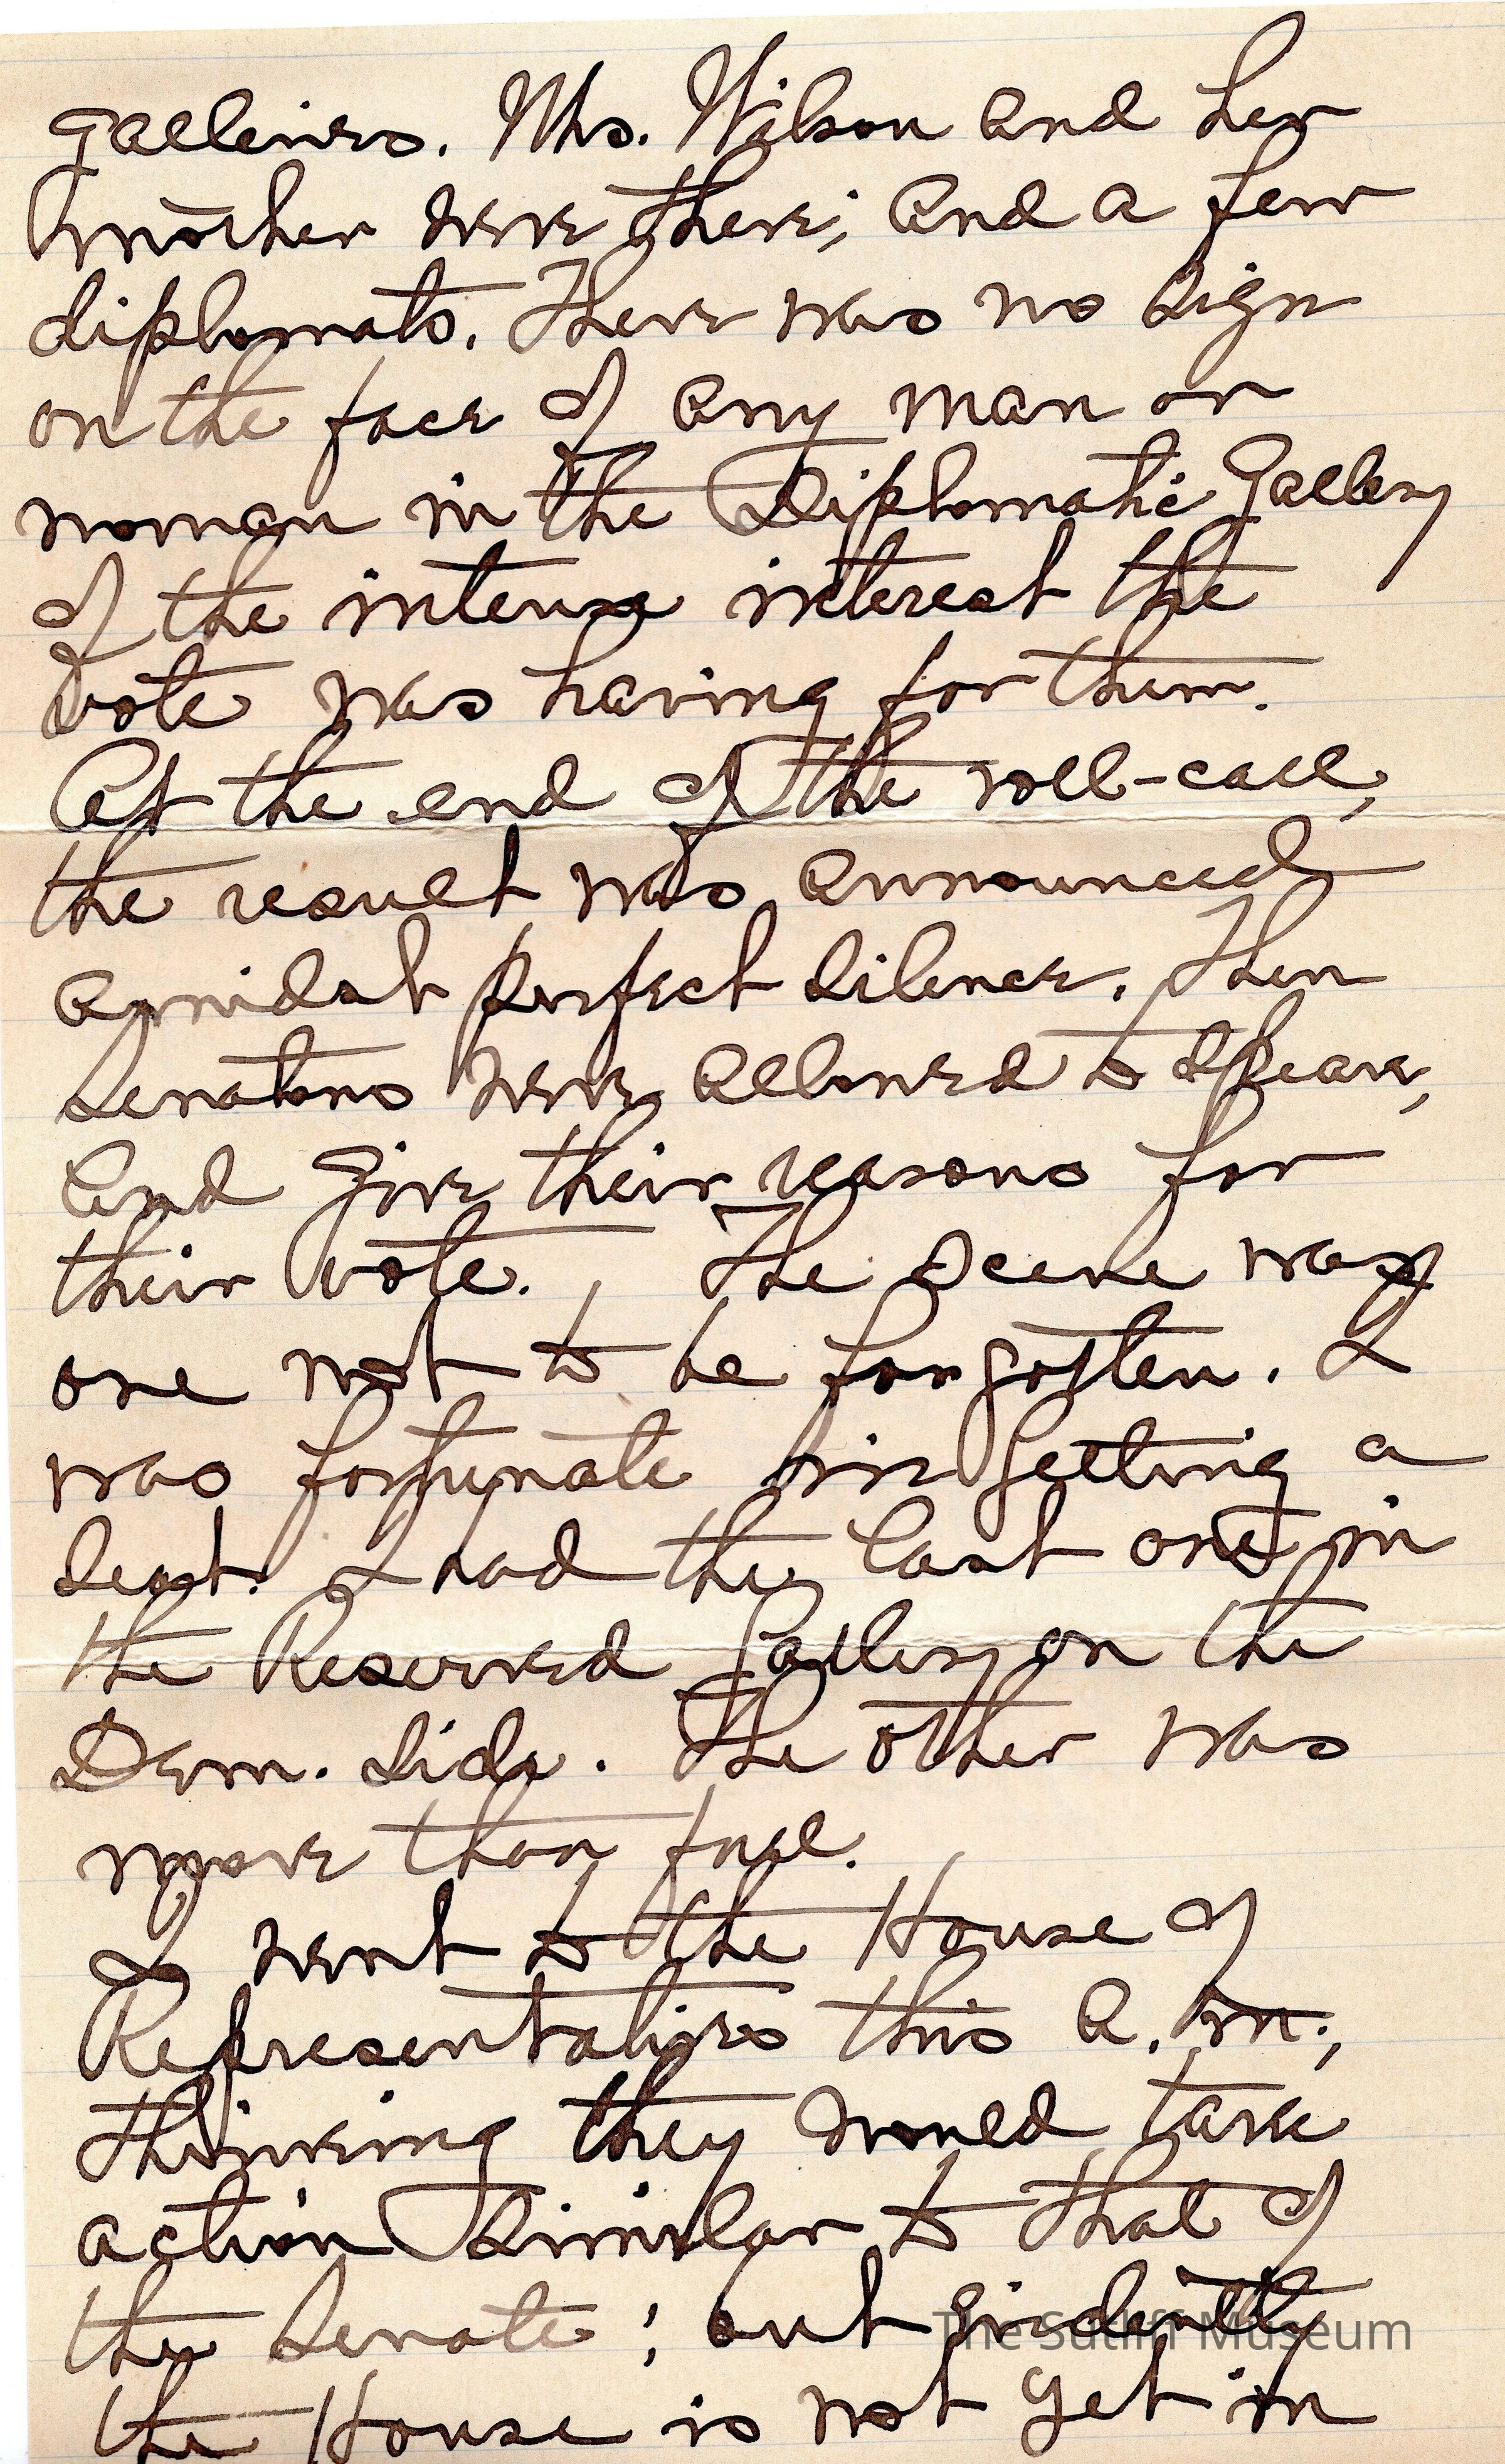 galleries. Mrs. Wilson and her
mother were there; and a few
diplomats. There was no sign
on the face of any man or
woman in the Diplomatic Gallery
of the intense interest the
vote was having for them.
At the end of the roll-call,
the result was announced
amidst perfect silence. Then
Senators were allowed to speak,
and give their reasons for
their vote. The scene was
one not to be forgotten. I
was fortunate in getting a
seat. I had the last one in
the Reserved Gallery on the
Dem. side. The other was
more than full.
I went to the House of
Representatives this a.m.,
thinking they would take
action similar to that of
the Senate; but evidently
The Sutliff Museum
the House is not yet in